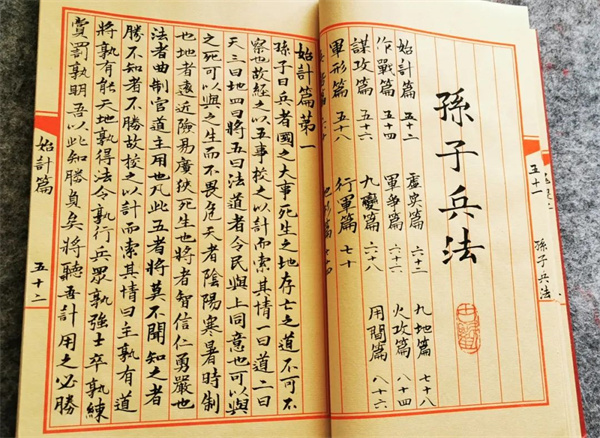 孫子兵法
五十一
孫子兵法
始計篇 五十二 虛實篇 六十二 九地篇 七十八
作戰篇 五十四 軍爭篇 六十六 火攻篇 八十四
謀攻篇 五十六 九變篇 六十八 用間篇 八十六
軍形篇 五十八 行軍篇 七十
地形篇
始計篇第一
孫子曰兵者國之大事死生之地存亡之道不可不
察也故經之以五事校之以計而索其情一曰道二曰
天三曰地四曰將五曰法道者令民與上同意也可以與
之死可以與之生而不畏危天者陰陽寒暑時制
也地者遠近險易廣狹死生也將者智信仁勇嚴也
法者曲制官道主用也凡此五者將莫不聞知之者
勝不知者不勝故校之以計而索其情曰主孰有道
將孰有能天地孰得法令孰行兵眾孰強士卒孰練
賞罰孰明吾以此知勝負矣將聽吾計用之必勝
始計篇
五十二